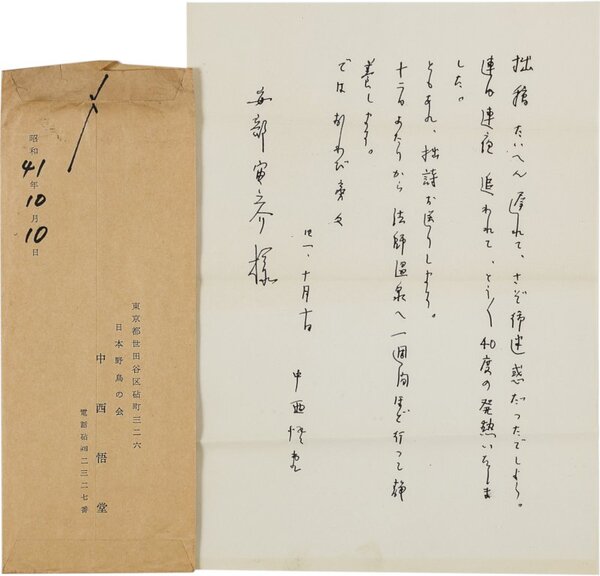 拙稿 たいへん 遅れて、さぞ御迷惑だつたでしよう。
連日連夜 追われて、とう〱 40度の発熱いたしま
した。
ともあれ、拙詩お送りします。
十二日あたりから 法師温泉へ 一週間ほど行つて 静
養します。
では おわび旁々
四一、十月十日
中西悟堂
安部宙之介様
東京都世田谷区砧町三二六
日本野鳥の会
中西悟堂
電話砧 二三二七番
昭和41年10月10日